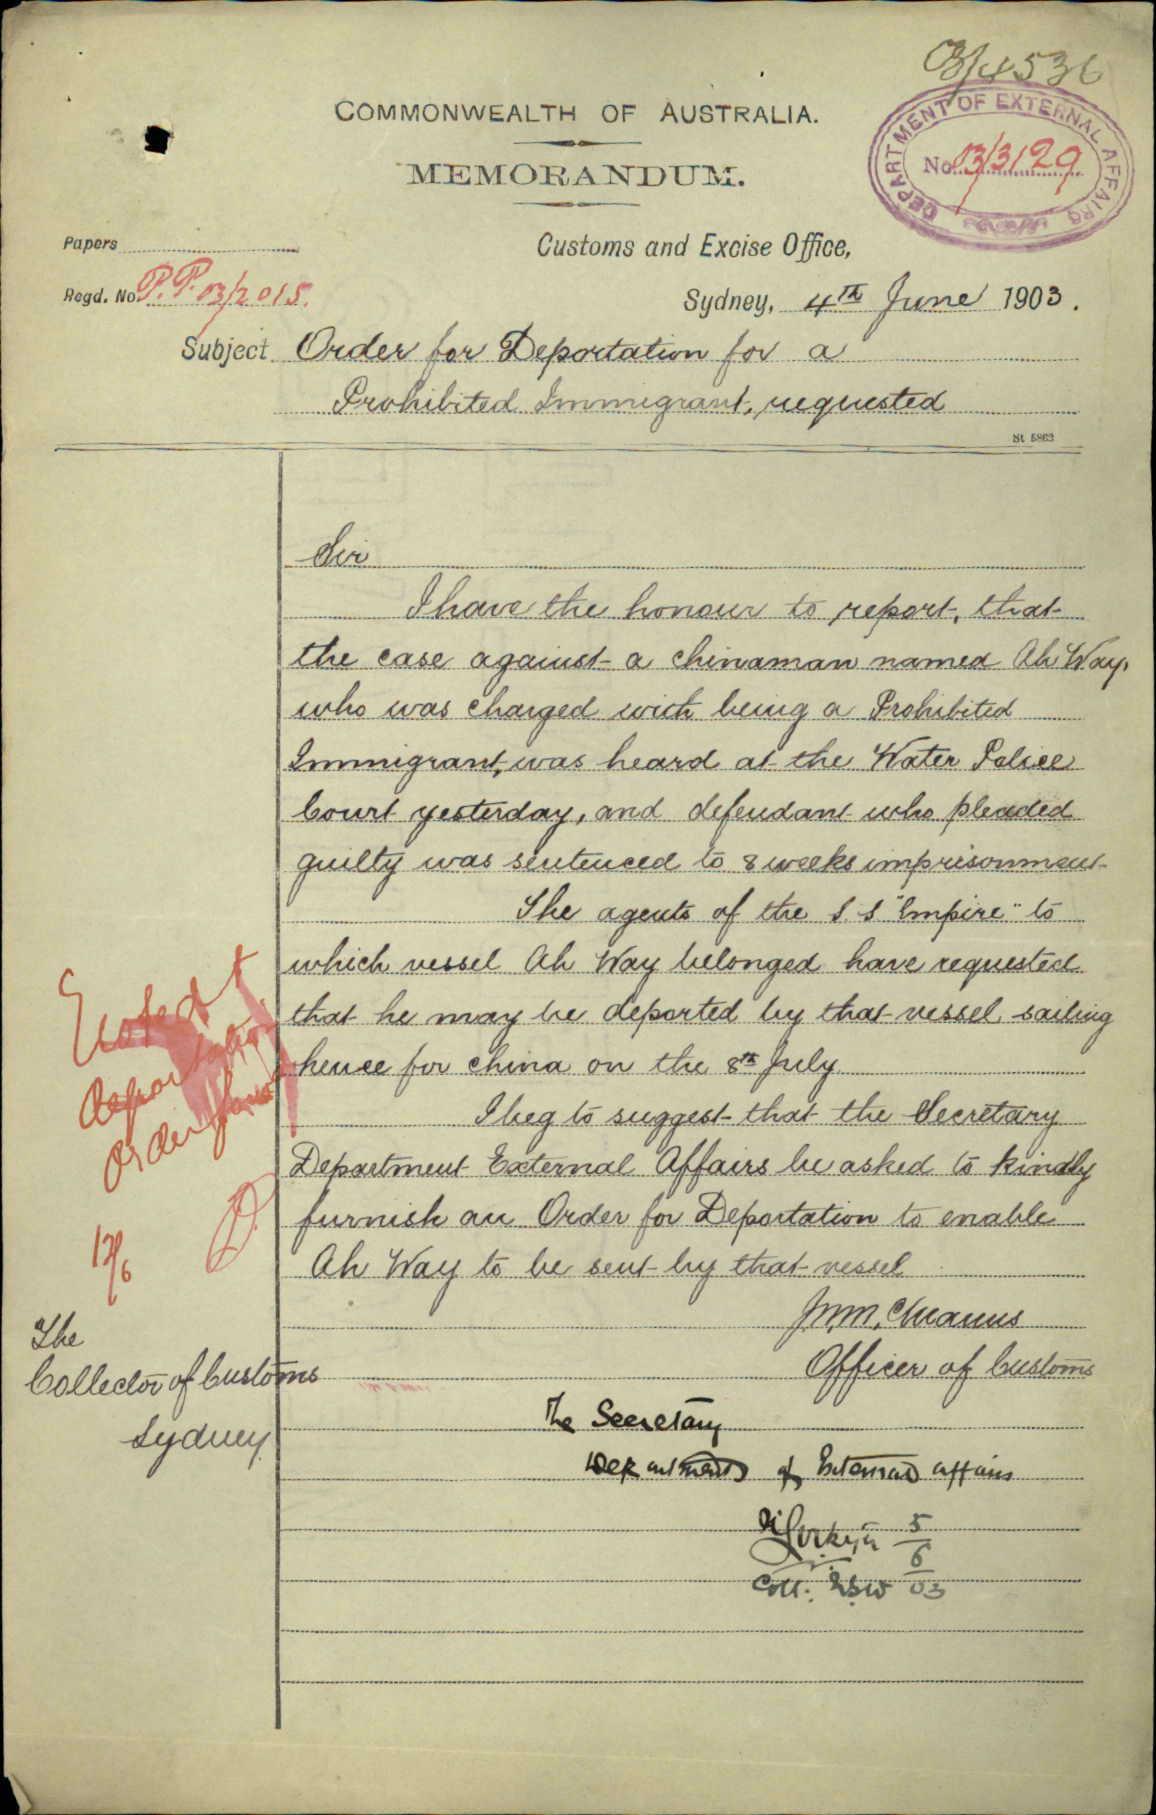 03/4536
COMMONWEALTH OF AUSTRALIA.
MEMORANDUM.
DEPARTMENT OF EXTERNAL AFFAIRS
No 03/3129
Papers
Customs and Excise Office,
Regd. No. P.P. 03/2015.
Sydney, 4th June 1903.
Subject Order for Deportation for a
Prohibited Immigrant, requested
St 5863
Sir
I have the honour to report, that
the case against a chinaman named Ah Way,
who was charged with being a Prohibited
Immigrant, was heard at the Water Police
Court yesterday, and defendant who pleaded
guilty was sentenced to 8 weeks imprisonment
The agents of the S.S "Empire" to
which vessel Ah Way belonged have requested
that he may be deported by that vessel sailing
hence for china on the 8th July
I beg to suggest that the Secretary
Department External Affairs be asked to kindly
furnish an Order for Deportation to enable
Ah Way to be sent by that vessel
deportation
order
12/6
Officer of Customs
The
Collector of Customs
Sydney
The Secretary
Department of External Affairs
5/6/03
Coll: NSW